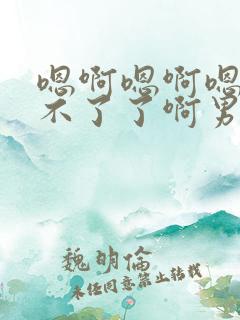 嗯啊嗯啊嗯
不了了啊男
魏明倫
未经同意禁止转载